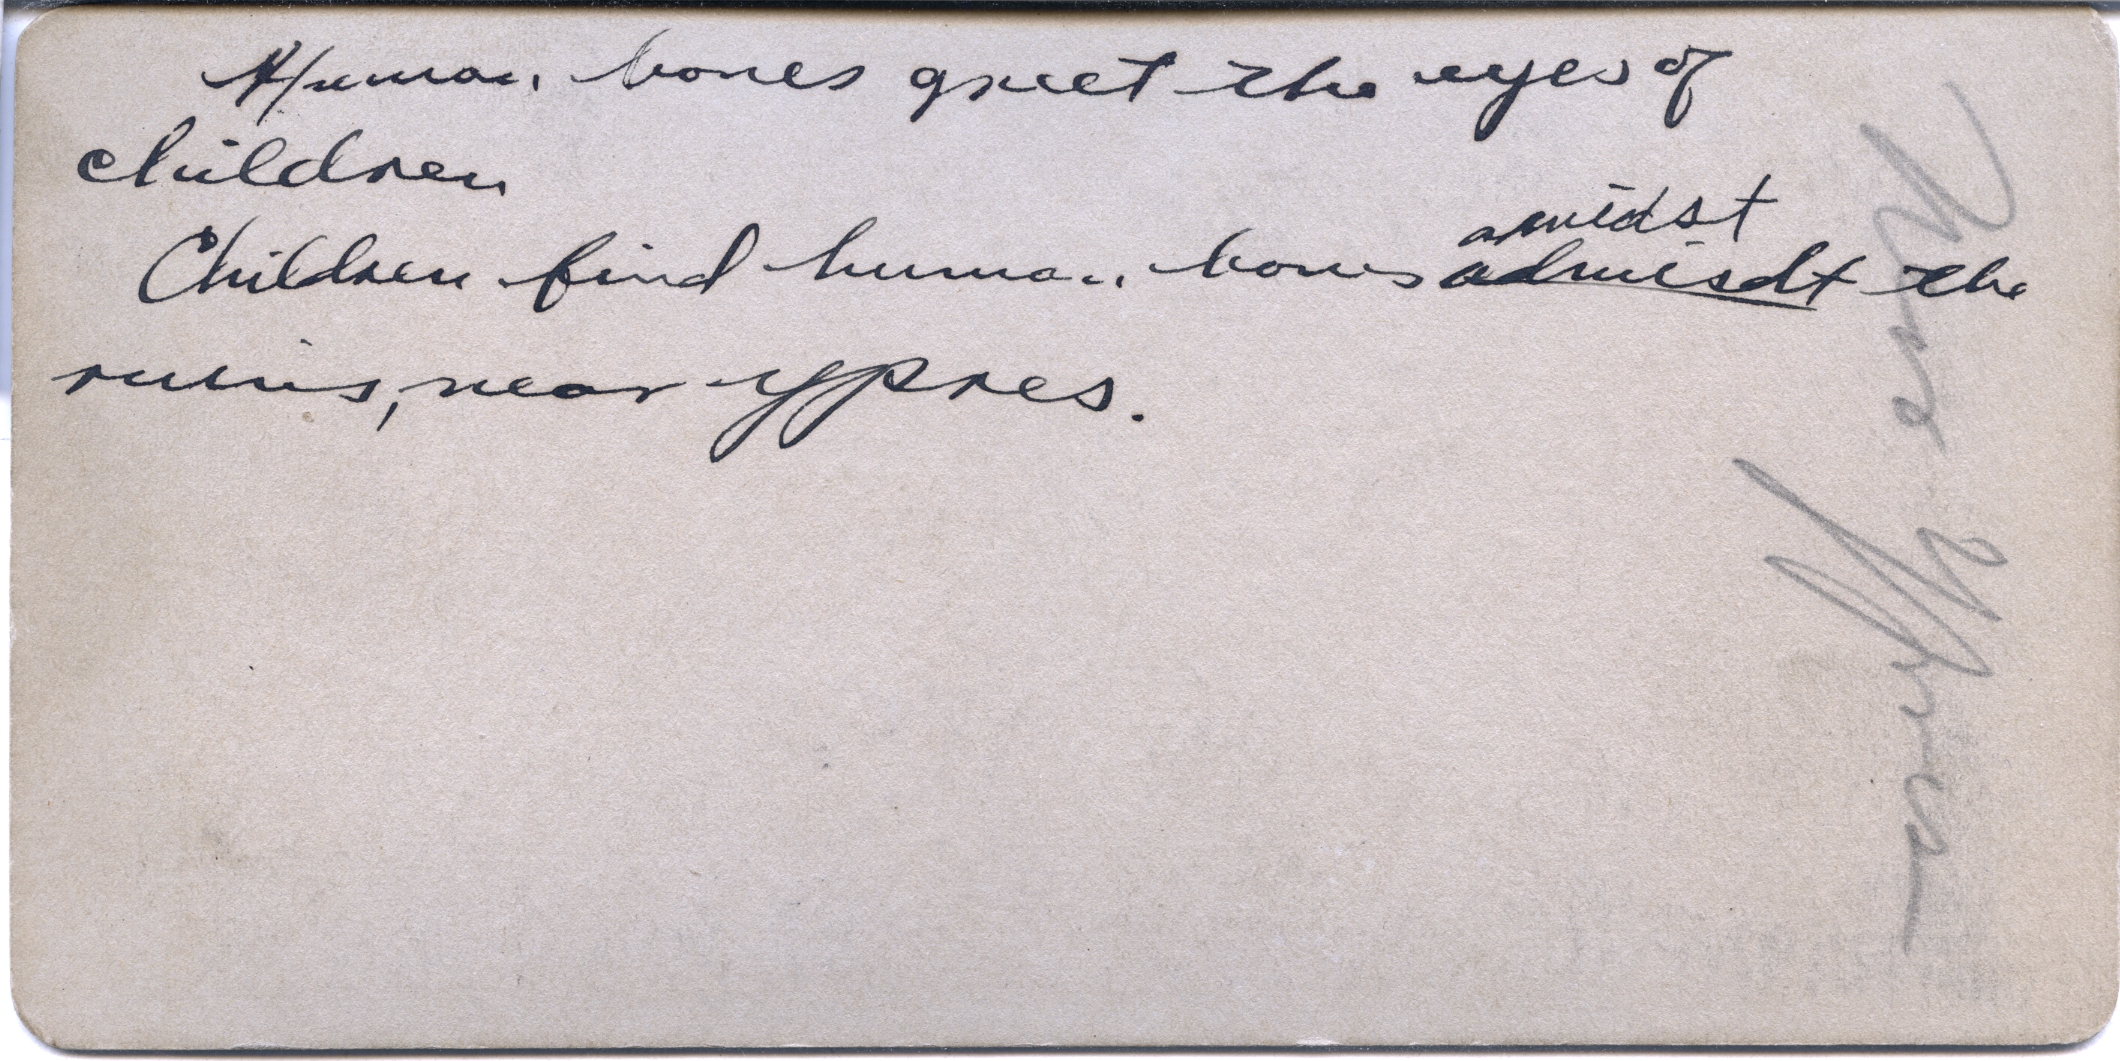 Human bones greet the eyes of
children
Children find human bones amidst admisdt the
ruins, near ypres.
Near Ypres